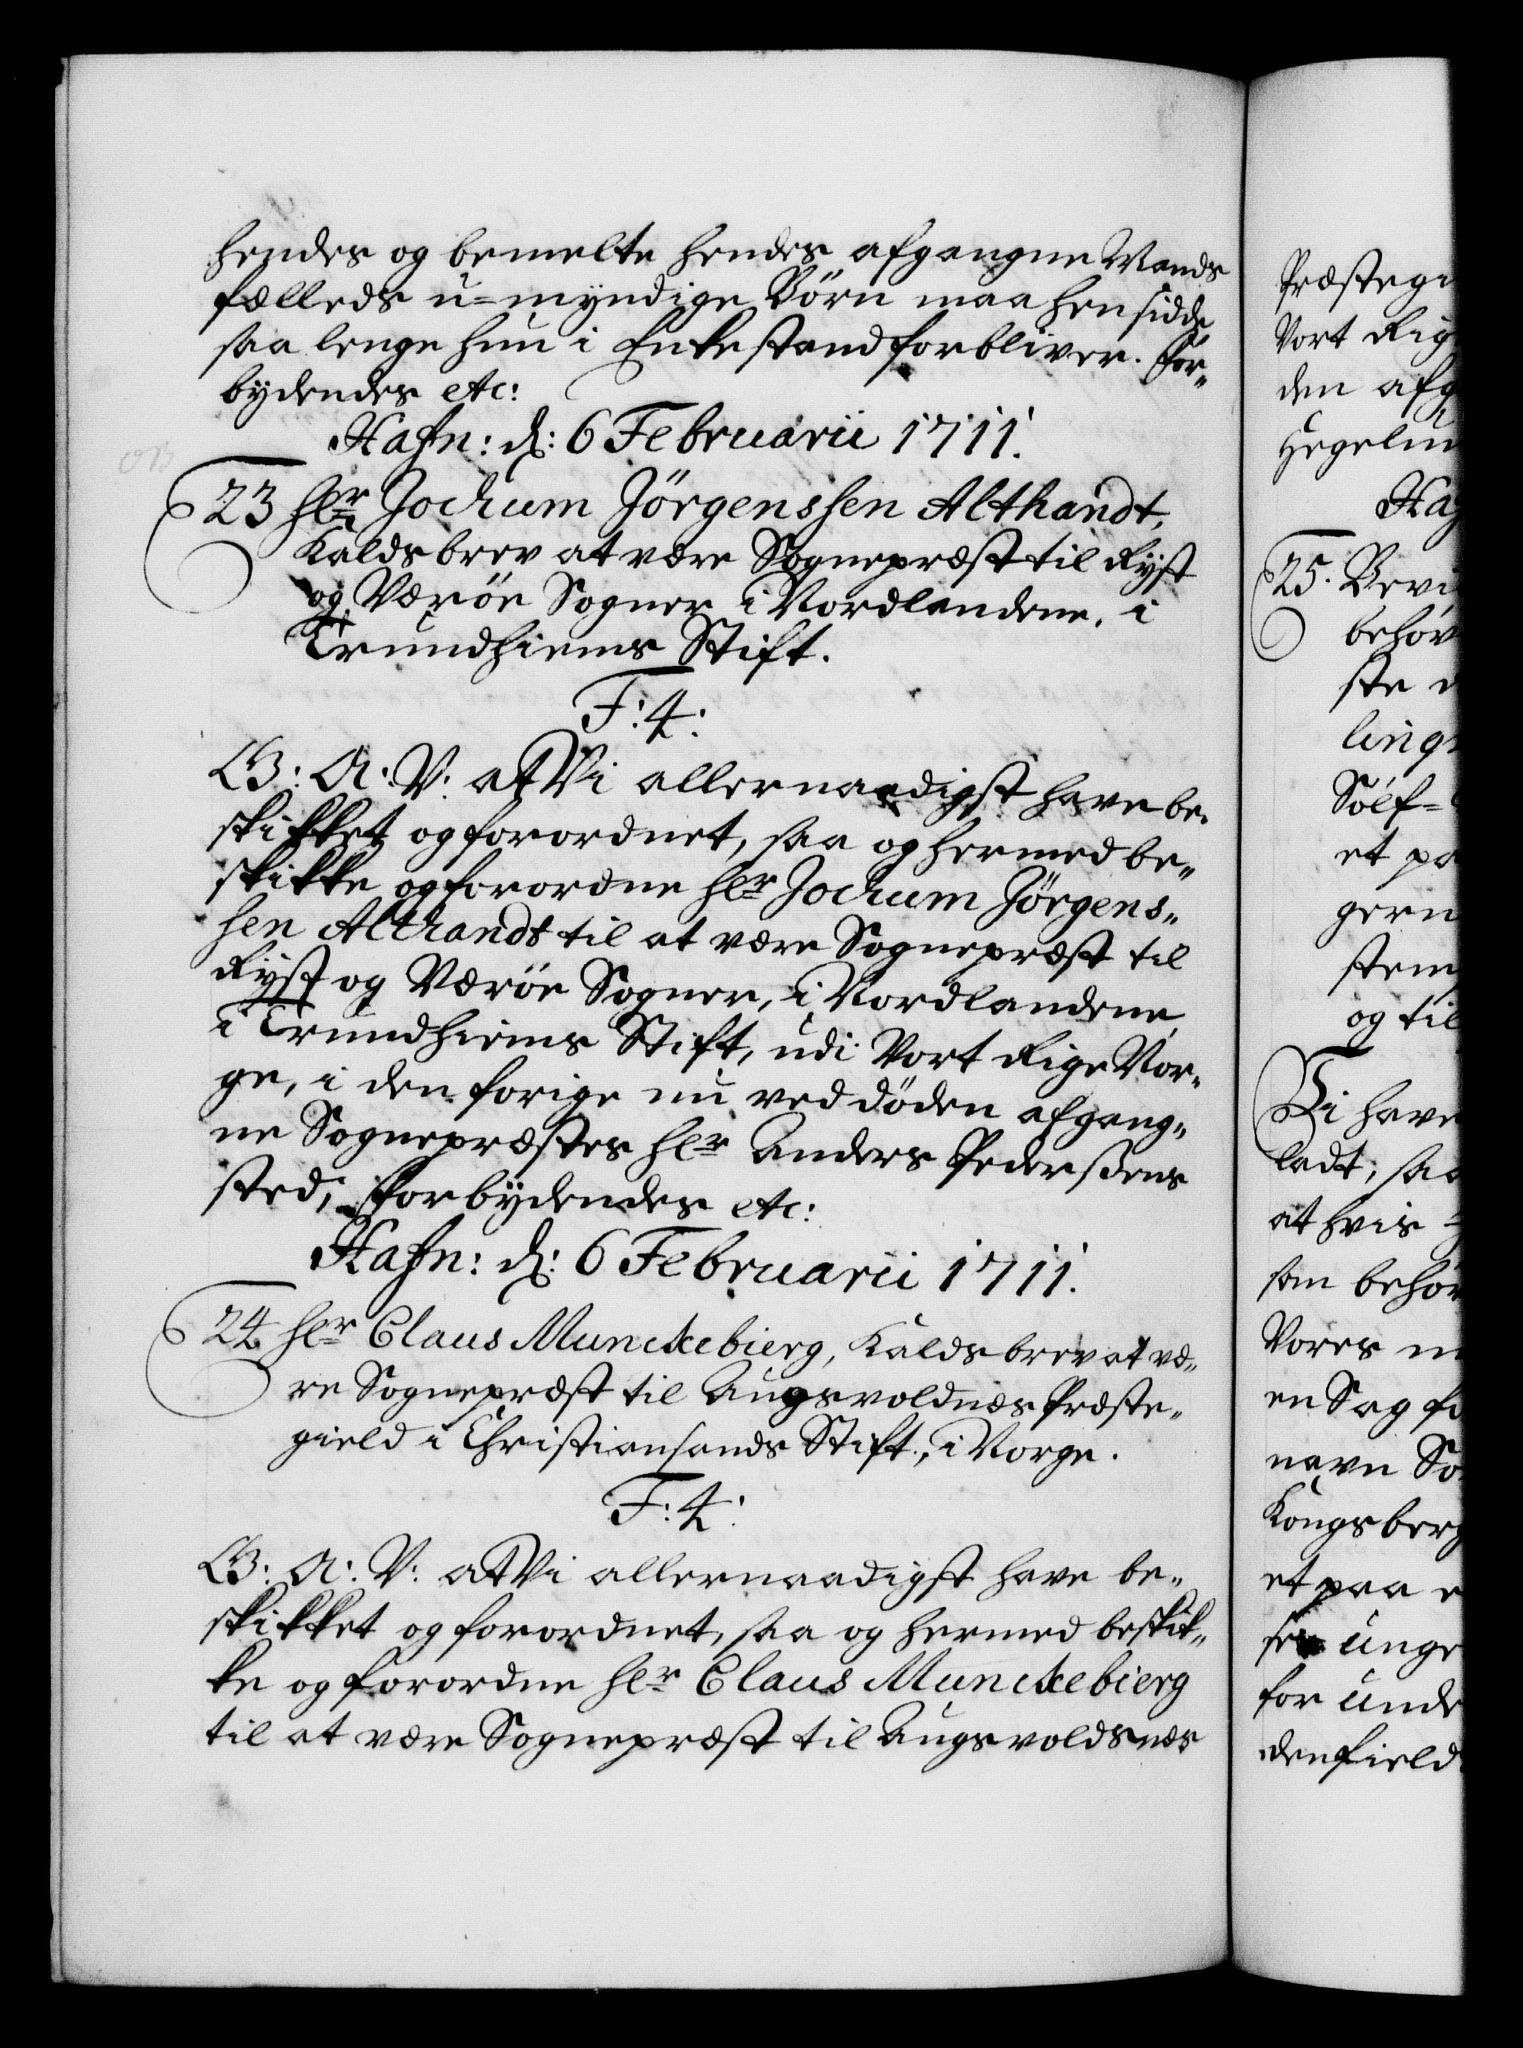 hendes og bemelte hendes afgangne Mands
fælleds u-myndige Børn maa hensidde
saa lenge hun i Enkestand forbliver. For„
bydendes etc:
Hafn: d: 6 Februarii 1711.
23 Hr Jochum Jörgenssen Althandt,
Kaldsbrev at være Sognepræst til Ryst
og Værøe Sogner i Nordlandene, i
Trundhiems Stift.
F: 4:
G: A: V: at Vi allernaadigst have be„
skikket og forordnet, saa og hermed be„
skikke og forordne Hr Jochum Jörgens„
sen Althandt til at være Sognepræst til
Ryst og Værøe Sogner, i Nordlandene
i Trundhiems Stift, udi Vort Rige Nor„
ge, i den forige nu ved døden afgang„
ne Sognepræstes Hr Anders Pederssens
sted, Forbydendes etc:
Hafn: d: 6 Februarii 1711.
24 Hr Claus Munckebierg, Kaldsbrev at væ„
re Sognepræst til Augsvoldnæs Præste„
gield i Christiansands Stift, i Norge.
F: 4:
G: A: V: at Vi allernaadigst have be„
skikket og forordnet, saa og hermed beskik„
ke og forordne Hr Claus Munckebierg
til at være Sognepræst til Augsvoldsnæs
Præstegi
Vort Rig
den afg
Hegelun
Haf
25. Bevi
behøv
ste
ling
Sölf-
et pa
gern
stem
og til
Vi have
ladt, saa
at hvis
som behør
Vores
en Sag fo
navn So
Kongsberg
et paa
unge
for unde
denfield